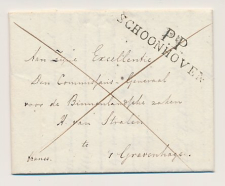 P.P.
SCHOONHOVEN
Aan Zijne Excellentie
Den Commissaris Generaal
voor de Binnenlandsche zaken
H. van Stralen
te
franco. 's Gravenhage.